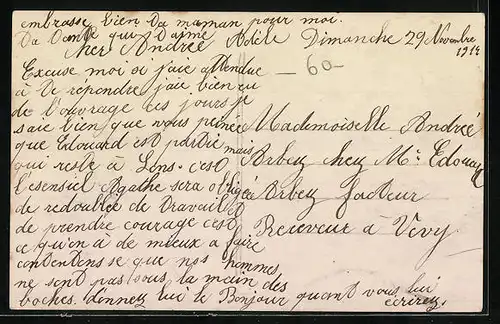 embrasse bien ta maman pour moi.
Ta Tante qui t'aime Adèle Dimanche 29 Novembre
1914
Cher Andreé
Excuse moi si j'aie attendue
— 60 —
à te rependre j'aie bien eu
de l'ouvrage ces jours je
saie bien que vous peinée
que Edouard est partie mais
qui reste à Lons c'est
l'esensiel Agathe sera obligée
de redoublée de travail et
de prendre courage c'est
ce qu'en à de mieux a faire
contentons se que nos hommes
ne sont pas sous la main des
boches. donnez lui le Bonjour quant vous lui
écrirez.
Mademoiselle Andreé
Arbey chez Mr Edouard
Arbey facteur
Receveur à Vevy